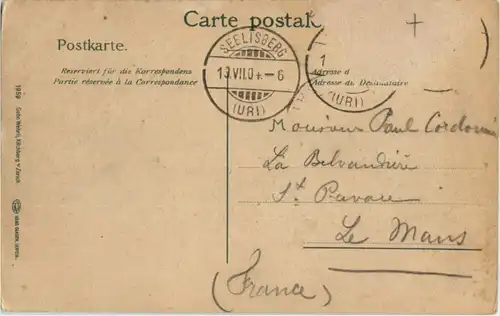 Carte postal
Postkarte.
Reserviert für die Korrespondenz
Partie réservée à la Correspondance
SEELISBERG
13.VII.0 .–6
(URI)
1
Adresse d
Adresse du Destinataire
(URI)
Monsieur Paul
La
St
Le Mans
(France)
1959 Gebr. Wehrli, Kilchberg b/ Zürich